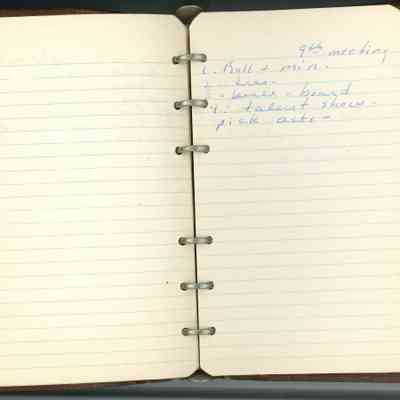 9th meeting
1. Roll + min.
2.
3. - board
4. talent show -
pick acts -